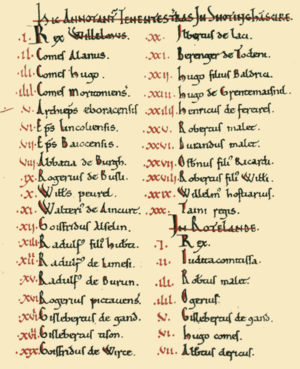 HIC ANNOTANT TENENTES TRAS IN SNOTINGHĀSCIRE.
.I. Rex Willelmus.
.II. Comes Alanus.
.III. Comes Hugo.
.IIII. Comes moritoniensis.
.V. Archieps eboracensis
.VI. Eps Lincoliensis.
.VII. Eps Baiocensis.
.VIII. Abbatia de Burgh.
.IX. Rogerius de Busli.
.X. Wills peurel.
.XI. Walteri de Aincurt.
.XII. Goisfridus Alselin.
.XIII. Radulf filis hubti.
Radulf de Limesi.
Radulf de Burun.
Rogerius pictauens.
.XVII. Gislebertus de gand.
Gislebertus tison.
Goisfridus de Wirce.
.XX. Ilbertus de Laci.
.XXI. Berenger de Todeni.
.XXII. hugo filius Baldrici.
.XXIII. hugo de Grentemaisnil.
.XXIIII. henricus de fereres.
.XXV. Robertus malet.
Durandus malet.
Osbnus filis Ricardi.
Robertus filis Willi.
.XXIX. Willelm hostiarius.
.XXX. Taini regis.
IN ROTELANDE.
.I. Rex.
.II. Iudita comitissa.
.III. Robtus malet.
.IIII. Ogerius.
.V. Gislebertus de gand.
.VI. hugo comes.
.VII. Albtus clericus.